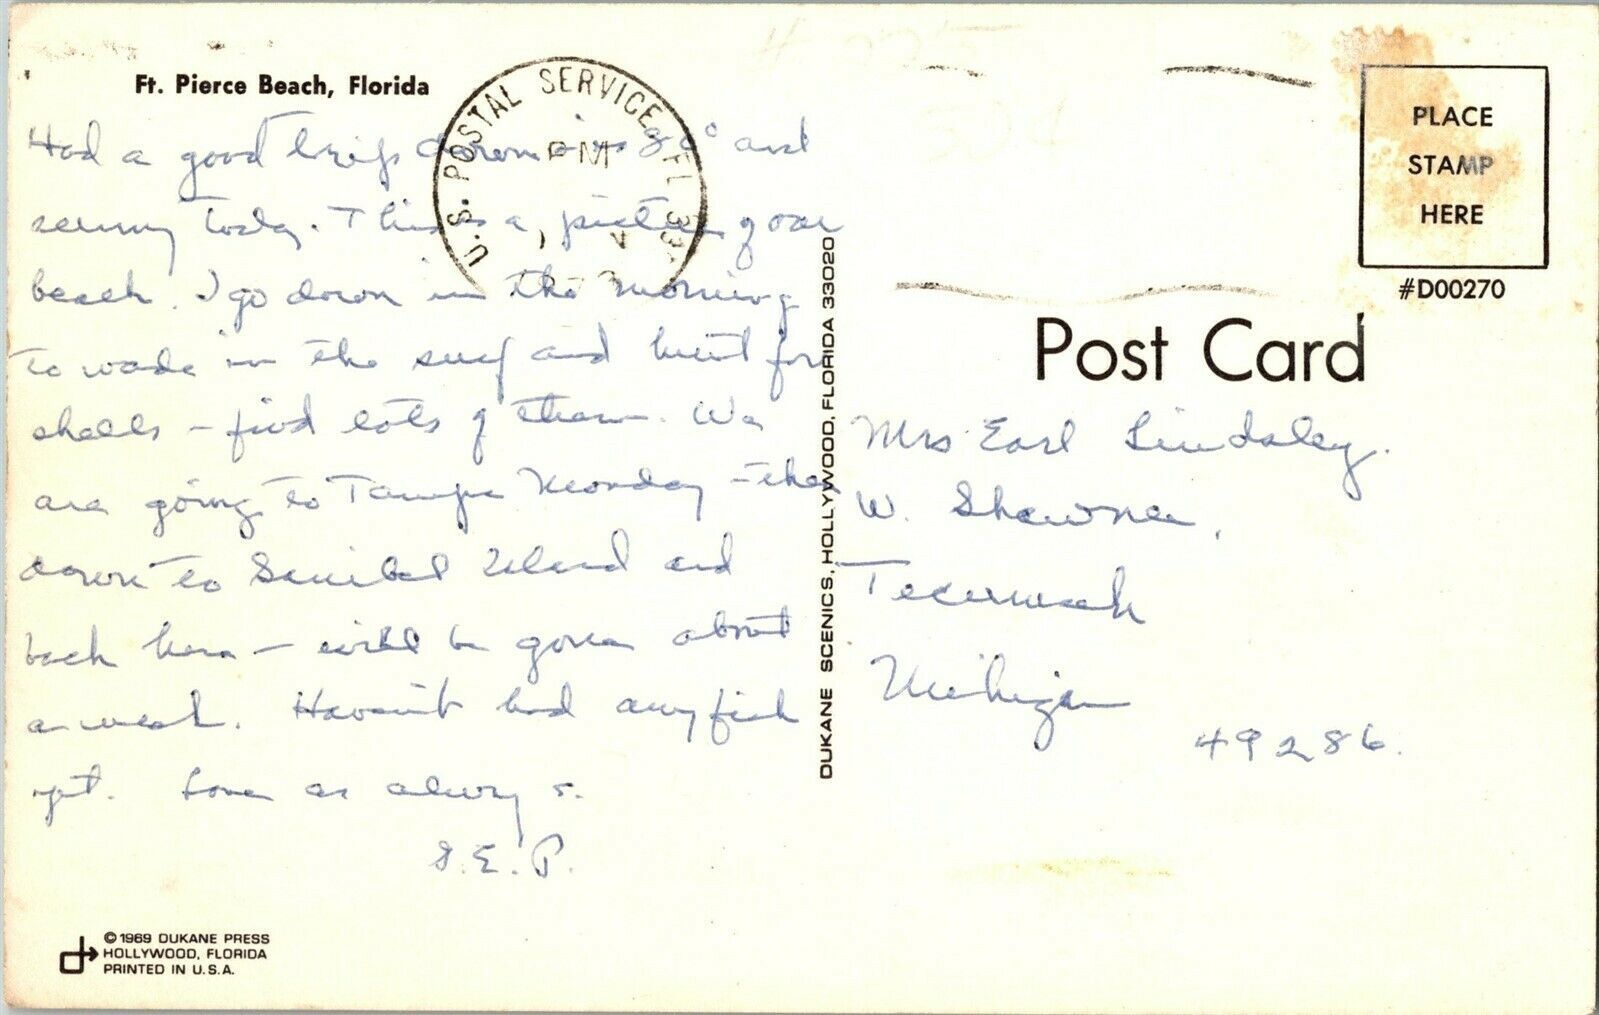 Ft. Pierce Beach, Florida
Had a good trip down - is 80° and
sunny today. This is a picture of our
beach. I go down in the morning
to wade in the surf and hunt for
shells - find lots of them. We
are going to Tampa Monday - then
down to Sanibel Island and
back here - will be gone about
a week. Haven't had any fish
yet. Love as always.
E. P.
© 1969 DUKANE PRESS
HOLLYWOOD, FLORIDA
PRINTED IN U.S.A.
U.S. POSTAL SERVICE FL
PM
DUKANE SCENICS, HOLLYWOOD, FLORIDA 33020
PLACE
STAMP
HERE
#D00270
Post Card
Mrs Earl Lindsley.
W. Shawnee,
Tecumseh
Michigan
49286.